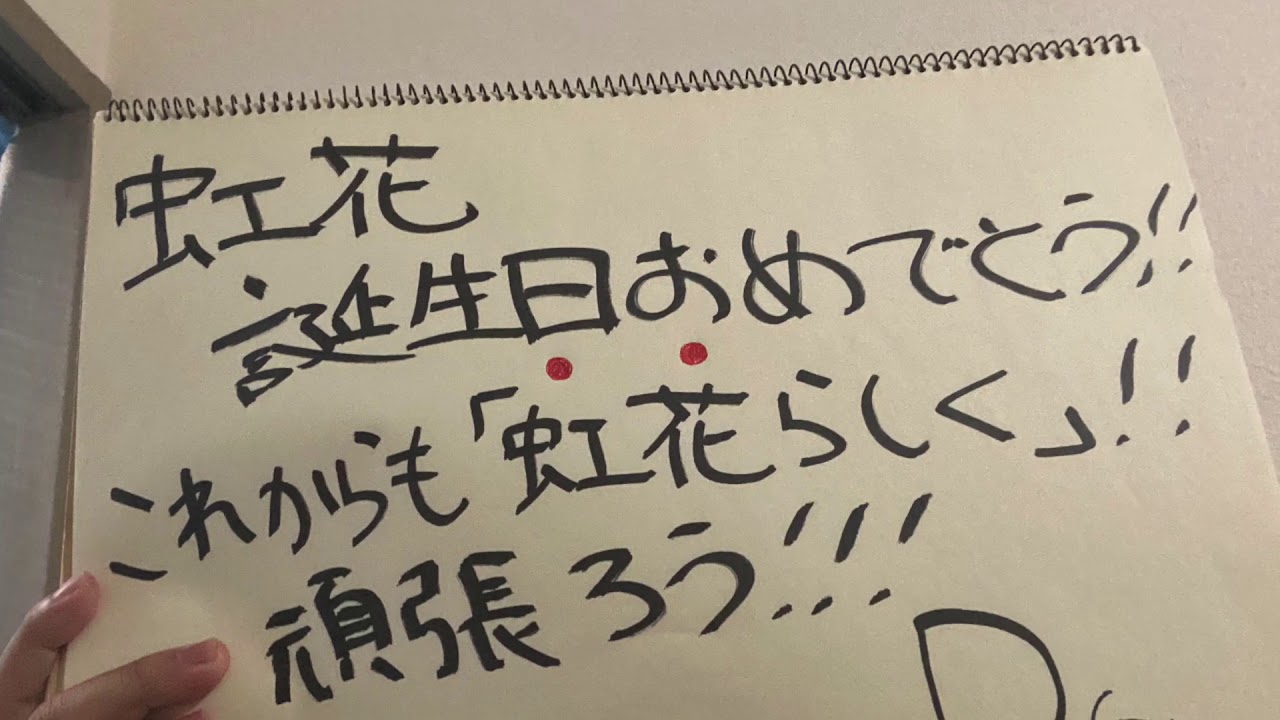 虹花
誕生日おめでとう!!
これからも「虹花らしく」!!
頑張ろう!!!
D